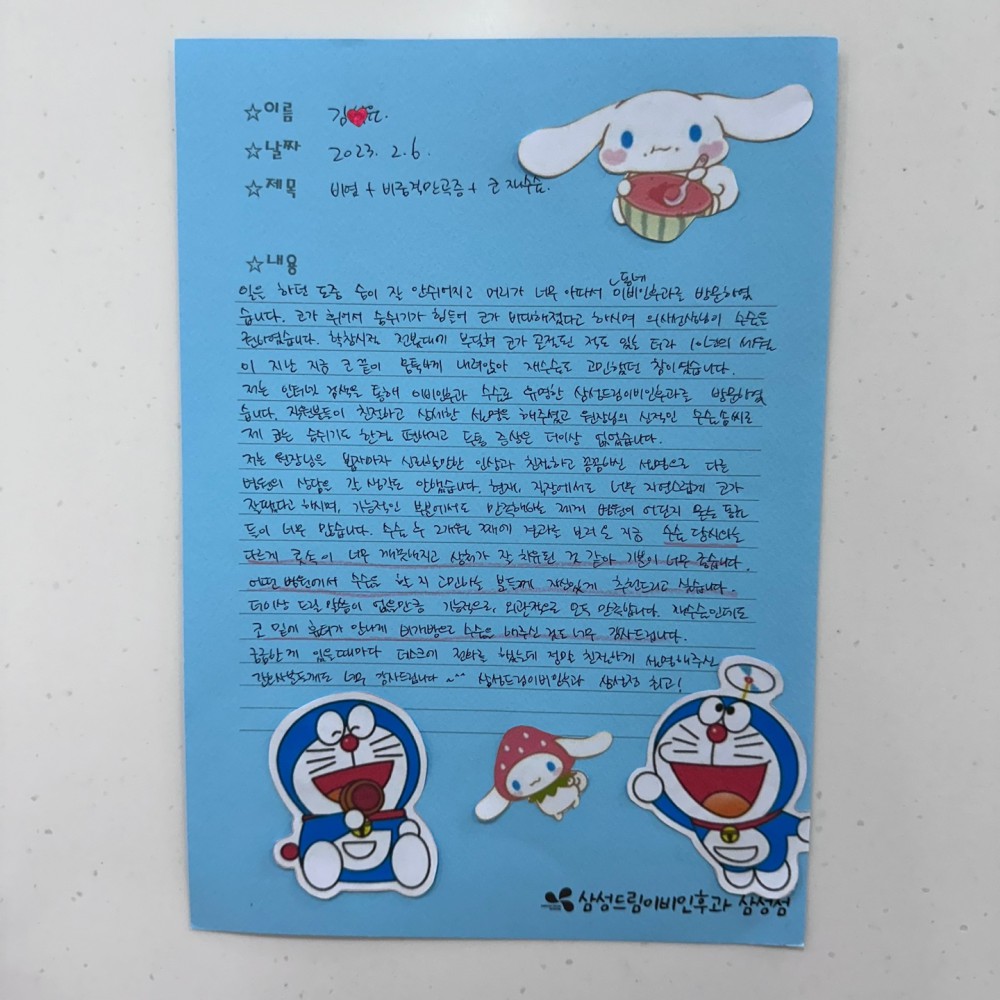 ☆이름 김
☆날짜 2023. 2. 6.
☆제목 비염 + 비중격만곡증 + 코 재수술.
☆내용
동네
일을 하던 도중 숨이 잘 안쉬어지고 머리가 너무 아파서 이비인후과로 방문하였
습니다. 코가 휘어서 숨쉬기가 힘들어 코가 비대해졌다고 하시며 의사선생님이 수술을
권하였습니다. 학창시절 전봇대에 부딪혀 코가 골절된 적도 있는 터라 10년의 세월
이 지난 지금 코 끝이 뭉툭하게 내려앉아 재수술도 고민했던 참이였습니다.
저는 인터넷 검색을 통해 이비인후과 수술로 유명한 삼성드림이비인후과로 방문하였
습니다. 직원분들이 친절하고 상세한 설명을 해주셨고 원장님의 실력적인 수술솜씨로
제 코는 숨쉬기도 한결 편해지고 두통 증상은 더이상 없었습니다.
저는 원장님을 뵙자마자 신뢰할만한 인상과 친절하고 꼼꼼하신 설명으로 다른
병원의 상담은 갈 생각도 안했습니다. 현재, 직장에서도 너무 자연스럽게 코가
잘됐다고 하시며, 기능적인 부분에서도 만족해하는 제게 병원이 어딘지 묻는 동료
들이 너무 많습니다. 수술 후 2개월 째에 결과를 보러 온 지금 수술 당시와는
다르게 콧속이 너무 깨끗해지고 상처가 잘 치유된 것 같아 기분이 너무 좋습니다.
어떤 병원에서 수술을 할 지 고민하실 분들께 자신있게 추천드리고 싶습니다.
더이상 드릴 말씀이 없을만큼 기능적으로, 외관적으로 모두 만족합니다. 재수술인데도
코 밑에 흉터가 안나게 비개방으로 수술을 해주신 점도 너무 감사드립니다.
궁금한게 있을때마다 데스크에 전화를 했는데 정말 친절하게 설명해주신
간호사분들께도 너무 감사드립니다 ~^^ 삼성드림이비인후과 삼성점 최고!
삼성드림이비인후과 삼성점